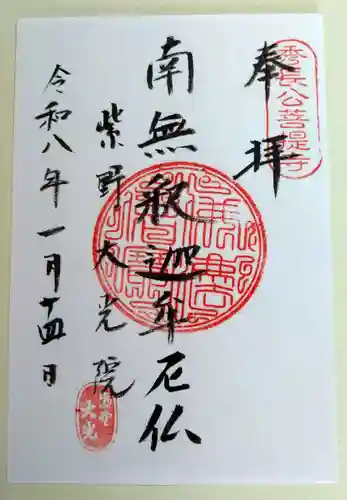 奉拝
秀長公菩提寺
南無釈迦牟尼仏
紫野大光院
令和八年一月十四日